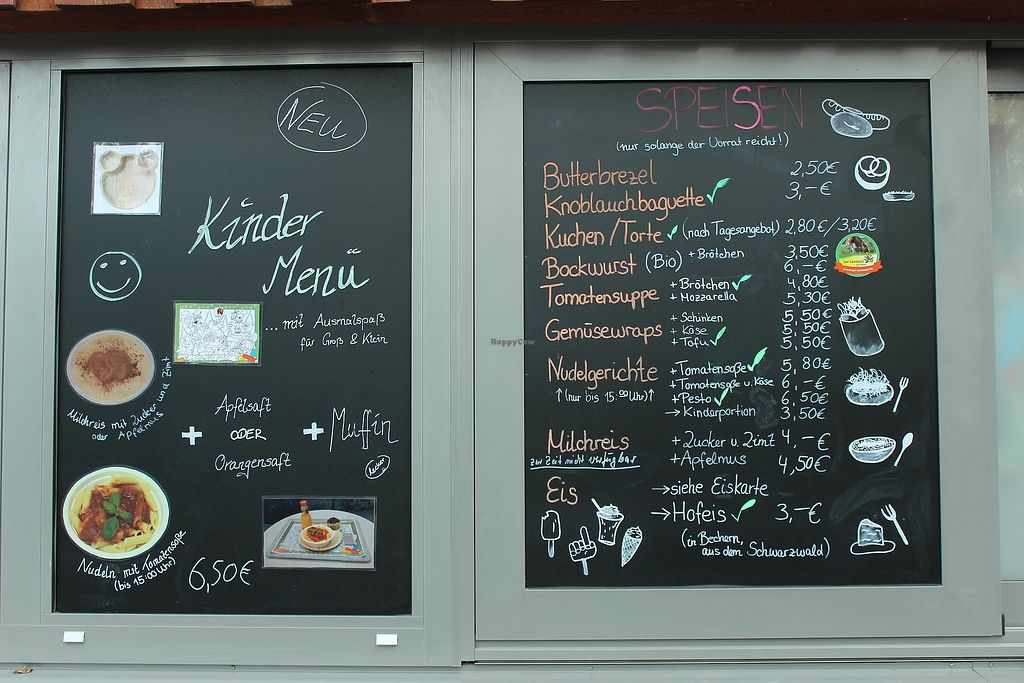 NEU
Kinder
Menü
... mit Ausmalspaß
für Groß & Klein
Milchreis mit Zucker und Zimt
oder Apfelmus
+
Apfelsaft
ODER
Orangensaft
+ Muffin
Nudeln mit Tomatensoße
(bis 15:00 Uhr)
6,50€
SPEISEN
(nur solange der Vorrat reicht!)
Butterbrezel 2,50€
Knoblauchbaguette 3,-€
Kuchen/Torte (nach Tagesangebot) 2,80€/3,20€
Bockwurst (Bio) + Brötchen 3,50€
6,-€
Tomatensuppe + Brötchen 4,80€
+ Mozzarella 5,30€
Gemüsewraps + Schinken 5,50€
+ Käse 5,50€
+ Tofu 5,50€
Nudelgerichte + Tomatensoße 5,80€
↑(nur bis 15:00 Uhr)↑ + Tomatensoße u. Käse 6,-€
+ Pesto 6,50€
→ Kinderportion 3,50€
Milchreis + Zucker u. Zimt 4,-€
zur Zeit nicht verfügbar + Apfelmus 4,50€
Eis → siehe Eiskarte
→ Hofeis 3,-€
(in Bechern,
aus dem Schwarzwald)
HappyCow